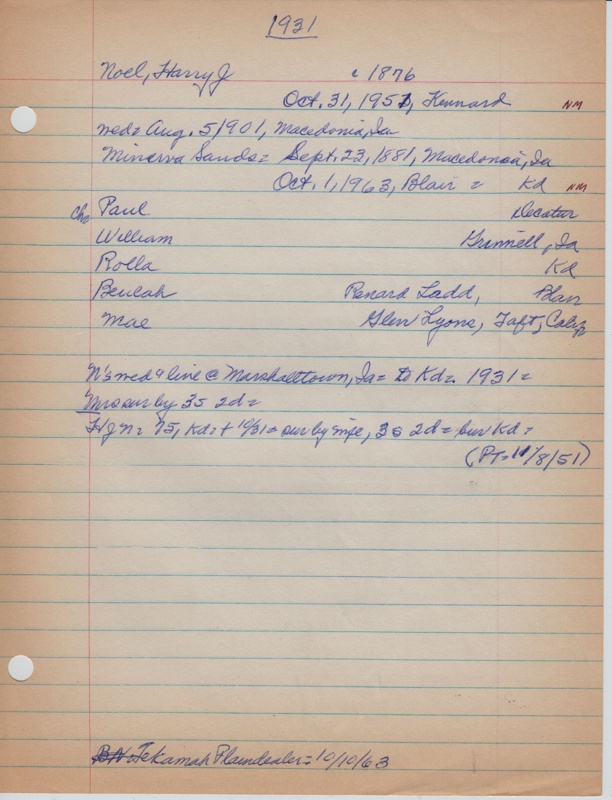 1931
Noel, Harry J c 1876
Oct. 31, 1951, Kennard NM
med= Aug. 5/901, Macedonia, Ia
Minerva Sands= Sept. 23, 1881, Macedonia, Ia
Oct. 1, 1963, Blair = Kd NM
Ch= Paul Decatur
William Grinnell, Ia
Rolla Kd
Beulah Renard Ladd, Blair
Mae Glen Lyons, Taft, Calif
N's med & live @ Marshalltown, Ia= to Kd= 1931=
Mrs sur by 3s 2d=
HJN= 75, Kd= + 10/31= sur by wife, 3s 2d= bur Kd=
(PT= 11/8/51)
BN Tekamah Plaindealer= 10/10/63